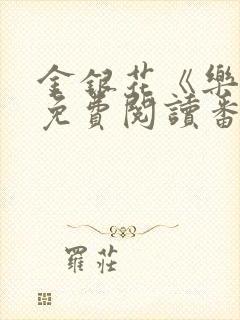 金銀花《樂
免費閱讀番
羅莊